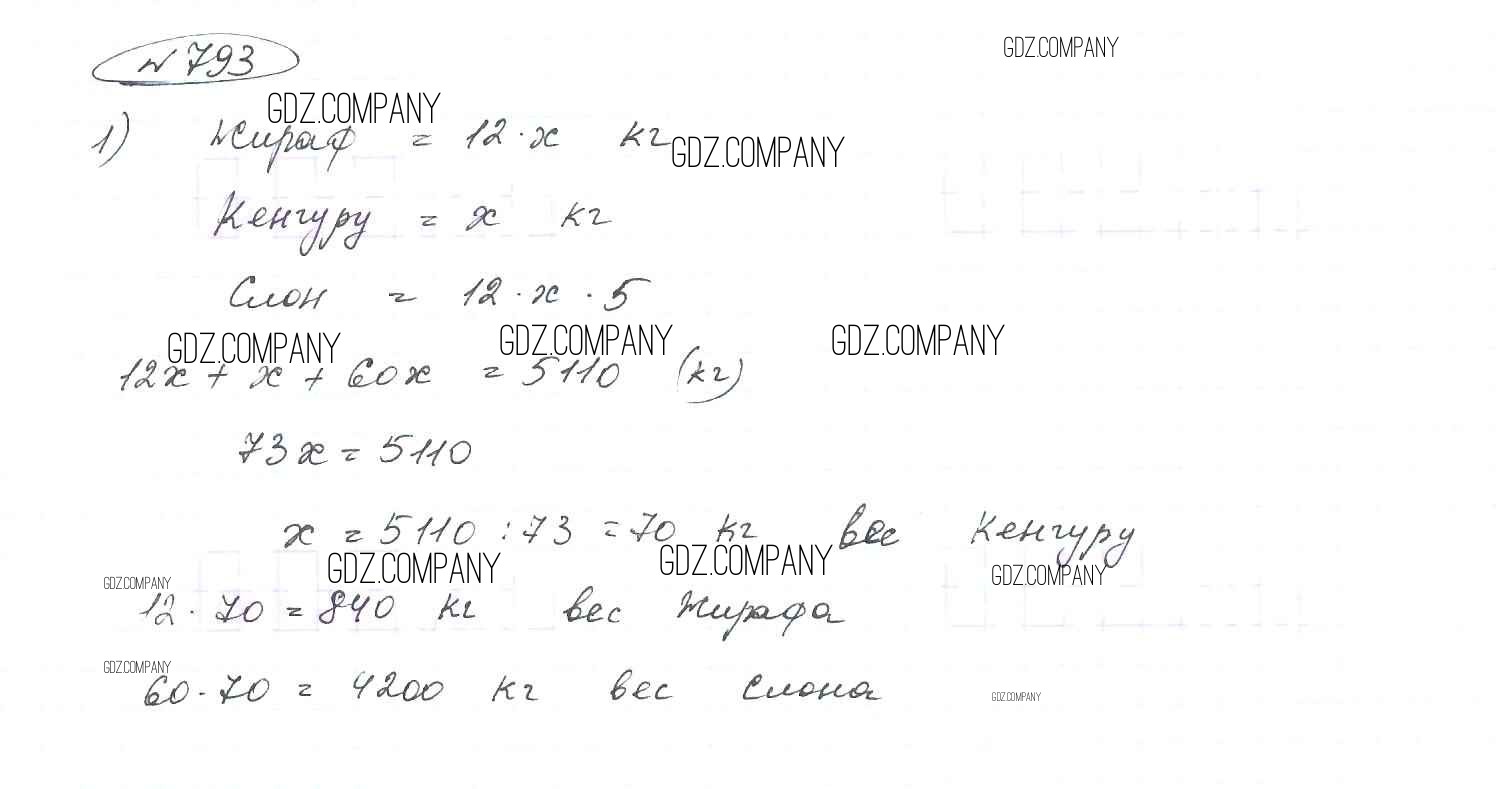 № 793
GDZ.COMPANY
GDZ.COMPANY
1) Жираф = 12·x кг
GDZ.COMPANY
Кенгуру = x кг
Слон = 12·x·5
GDZ.COMPANY GDZ.COMPANY GDZ.COMPANY
12x + x + 60x = 5110 (кг)
73x = 5110
x = 5110 : 73 = 70 кг вес Кенгуру
GDZ.COMPANY GDZ.COMPANY GDZ.COMPANY GDZ.COMPANY
12·70 = 840 кг вес Жирафа
GDZ.COMPANY
60·70 = 4200 кг вес слона
GDZ.COMPANY